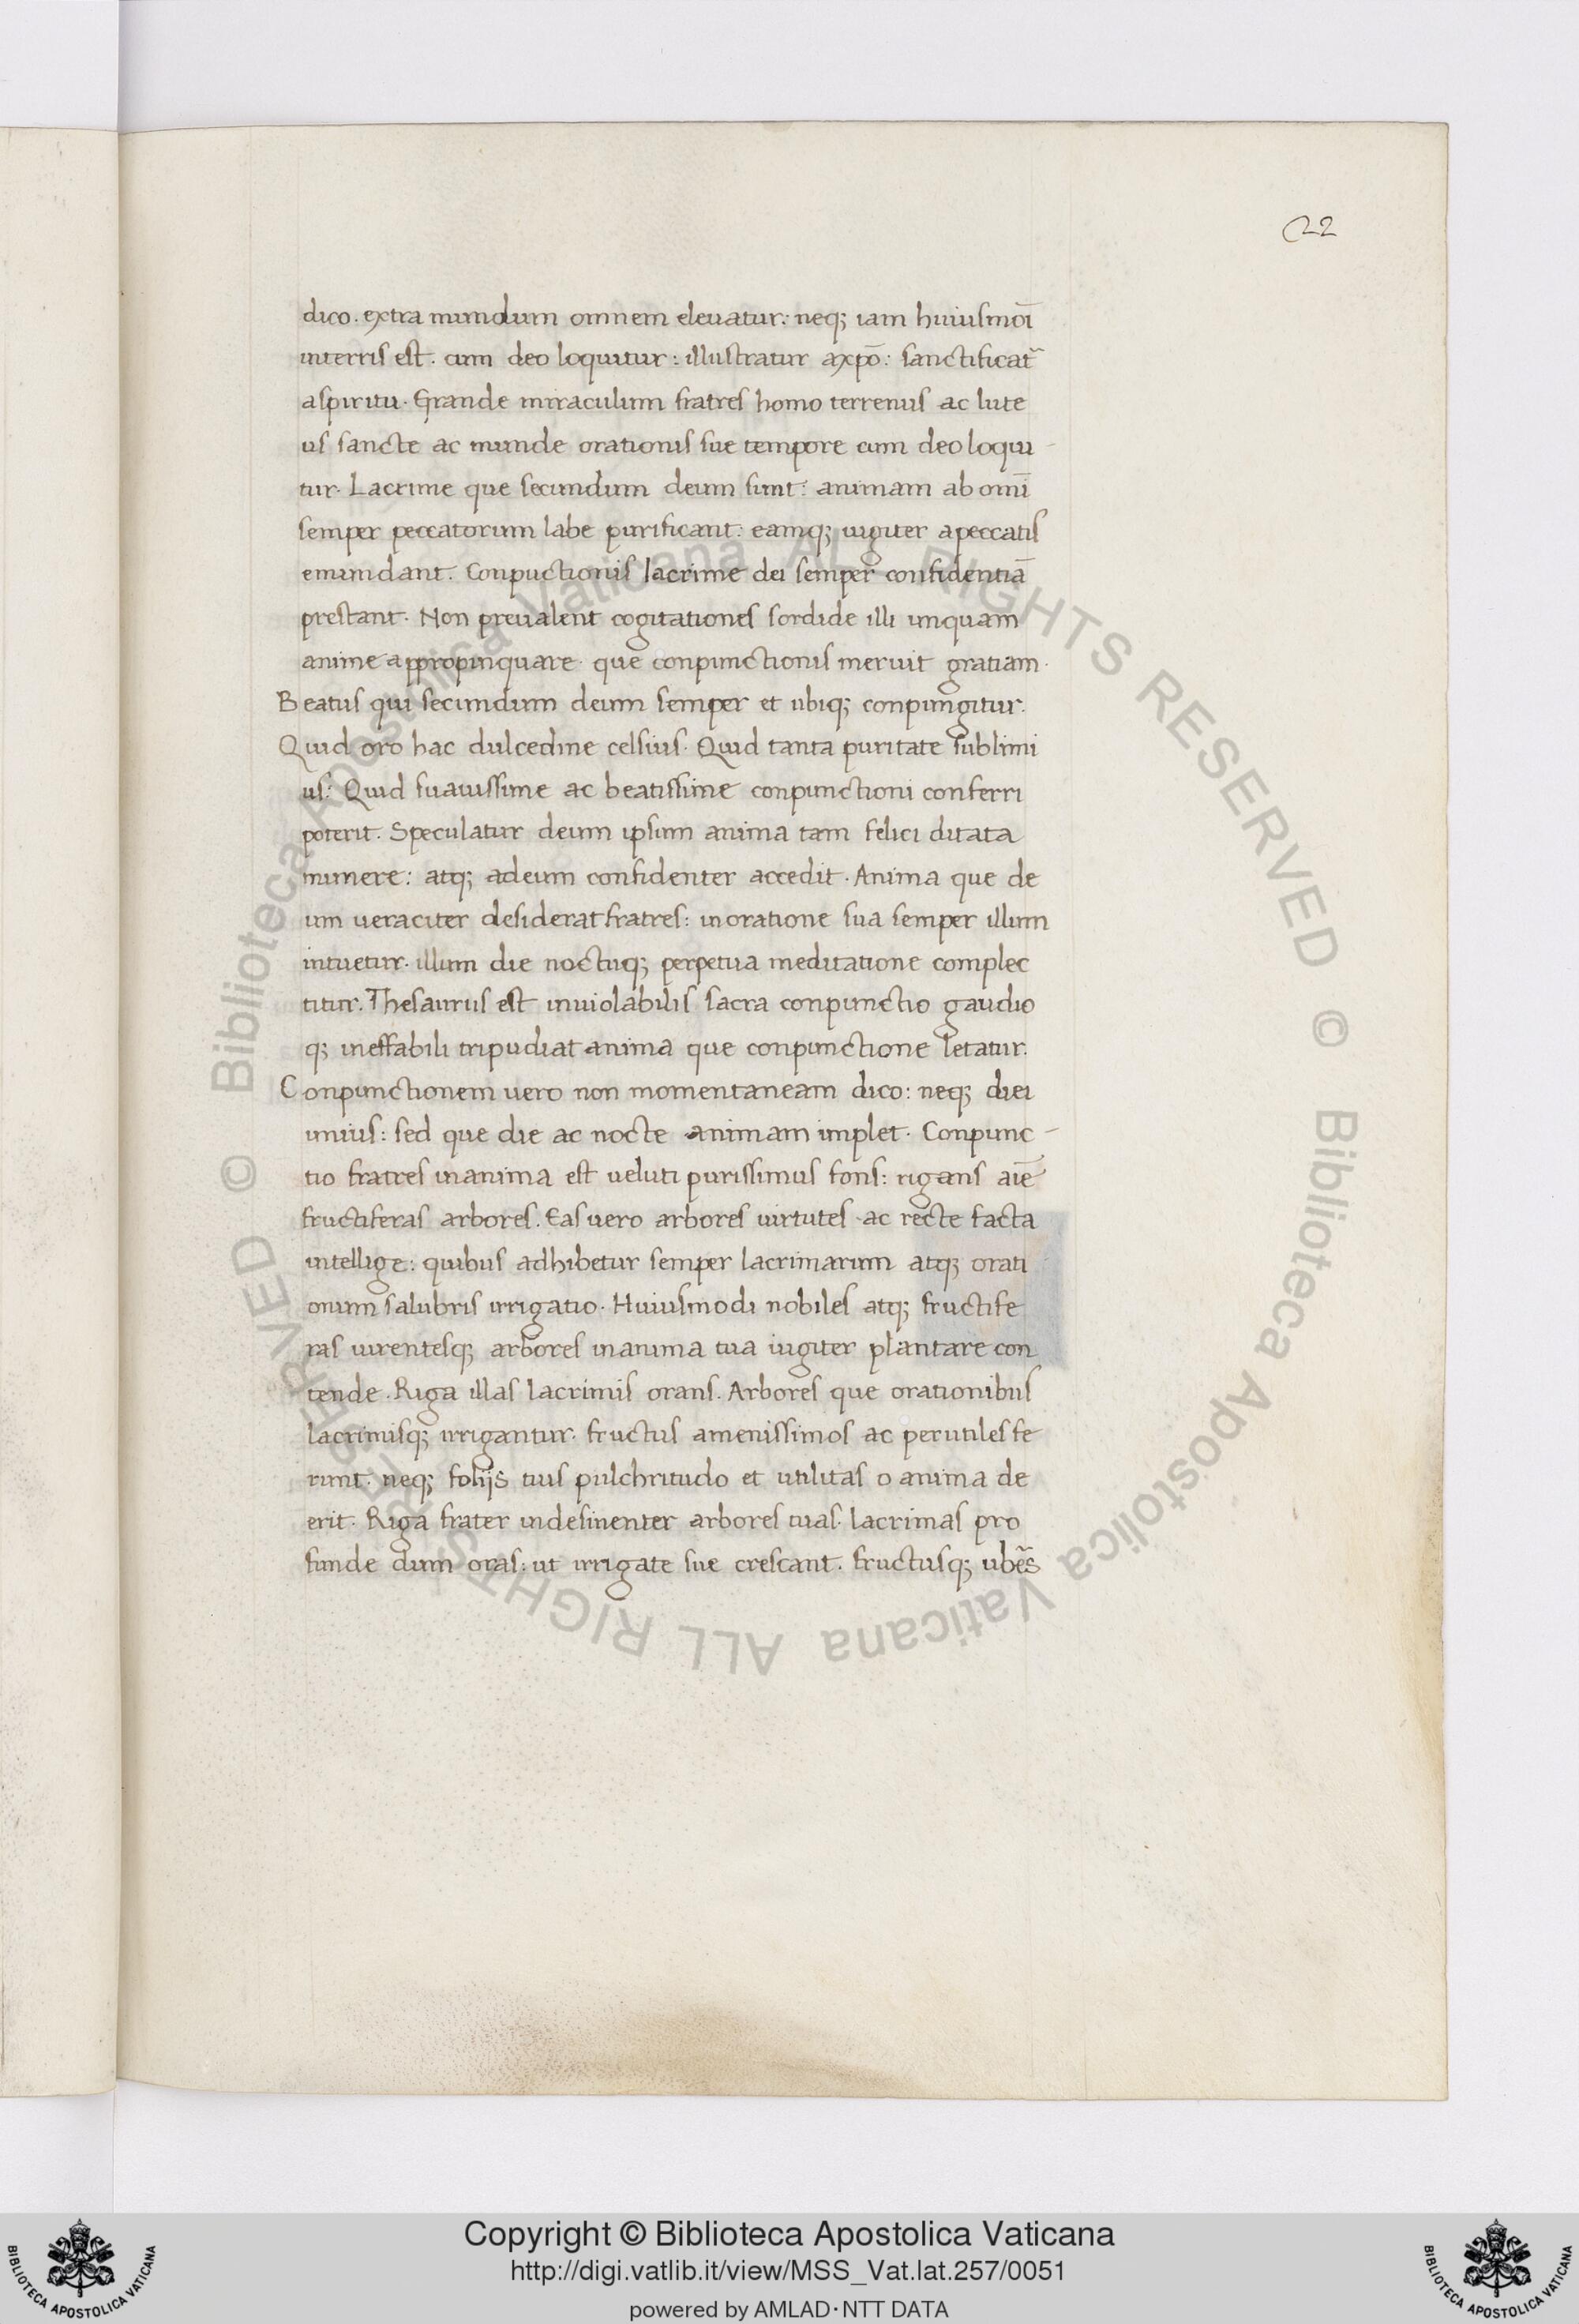 22
dico. extra mundum omnem eleuatur: neq; iam huiusmoī
interris est. cum deo loquitur: illustratur axpō: sanctificat᷑
aspiritu. Grande miraculum fratres homo terrenus ac lute
us sancte ac munde orationis sue tempore cum deo loqui-
tur. Lacrime que secundum deum sunt: animam ab omī
semper peccatorum labe purificant: eamq; iugiter apeccatis
emundant. Conpuctionis lacrime dei semper confidentiā
prestant. Non preualent cogitationes sordide illi unquam
anime appropinquare. que conpunctionis meruit gratiam.
Beatus qui secundum deum semper et ubiq; conpungitur.
Quid oro hac dulcedine celsius. Quid tanta puritate sublimi
us: Quid suauissime ac beatissime conpunctioni conferri
poterit. Speculatur deum ipsum anima tam felici ditata
munere: atq; adeum confidenter accedit. Anima que de
um ueraciter desiderat fratres: inoratione sua semper illum
intuetur. illum die noctuq; perpetua meditatione complec
titur. Thesaurus est inuiolabilis sacra conpunctio gaudio
q; ineffabili tripudiat anima que conpunctione letatur.
Conpunctionem uero non momentaneam dico: neq; diei
unius: sed que die ac nocte animam implet. Conpunc-
tio fratres inanima est ueluti purissimus fons: rigans aīe
fructiferas arbores. Eas uero arbores uirtutes ac recte facta
intellige: quibus adhibetur semper lacrimarum atq; orati
onum salubris irrigatio. Huiusmodi nobiles atq; fructife
ras uirentesq; arbores inanima tua iugiter plantare con
tende. Riga illas lacrimis orans. Arbores que orationibus
lacrimisq; irrigantur. fructus amenissimos ac perutiles fe
runt. neq; folijs tuis pulchritudo et utilitas o anima de
erit. Riga frater indesinenter arbores tuas. lacrimas pro
funde dum oras: ut irrigate sue crescant. fructusq; ubēs
© Biblioteca Apostolica Vaticana ALL RIGHTS RESERVED © Biblioteca Apostolica Vaticana ALL RIGHTS RESERVED
Copyright © Biblioteca Apostolica Vaticana
http://digi.vatlib.it/view/MSS_Vat.lat.257/0051
powered by AMLAD·NTT DATA
BIBLIOTECA APOSTOLICA VATICANA
BIBLIOTECA APOSTOLICA VATICANA